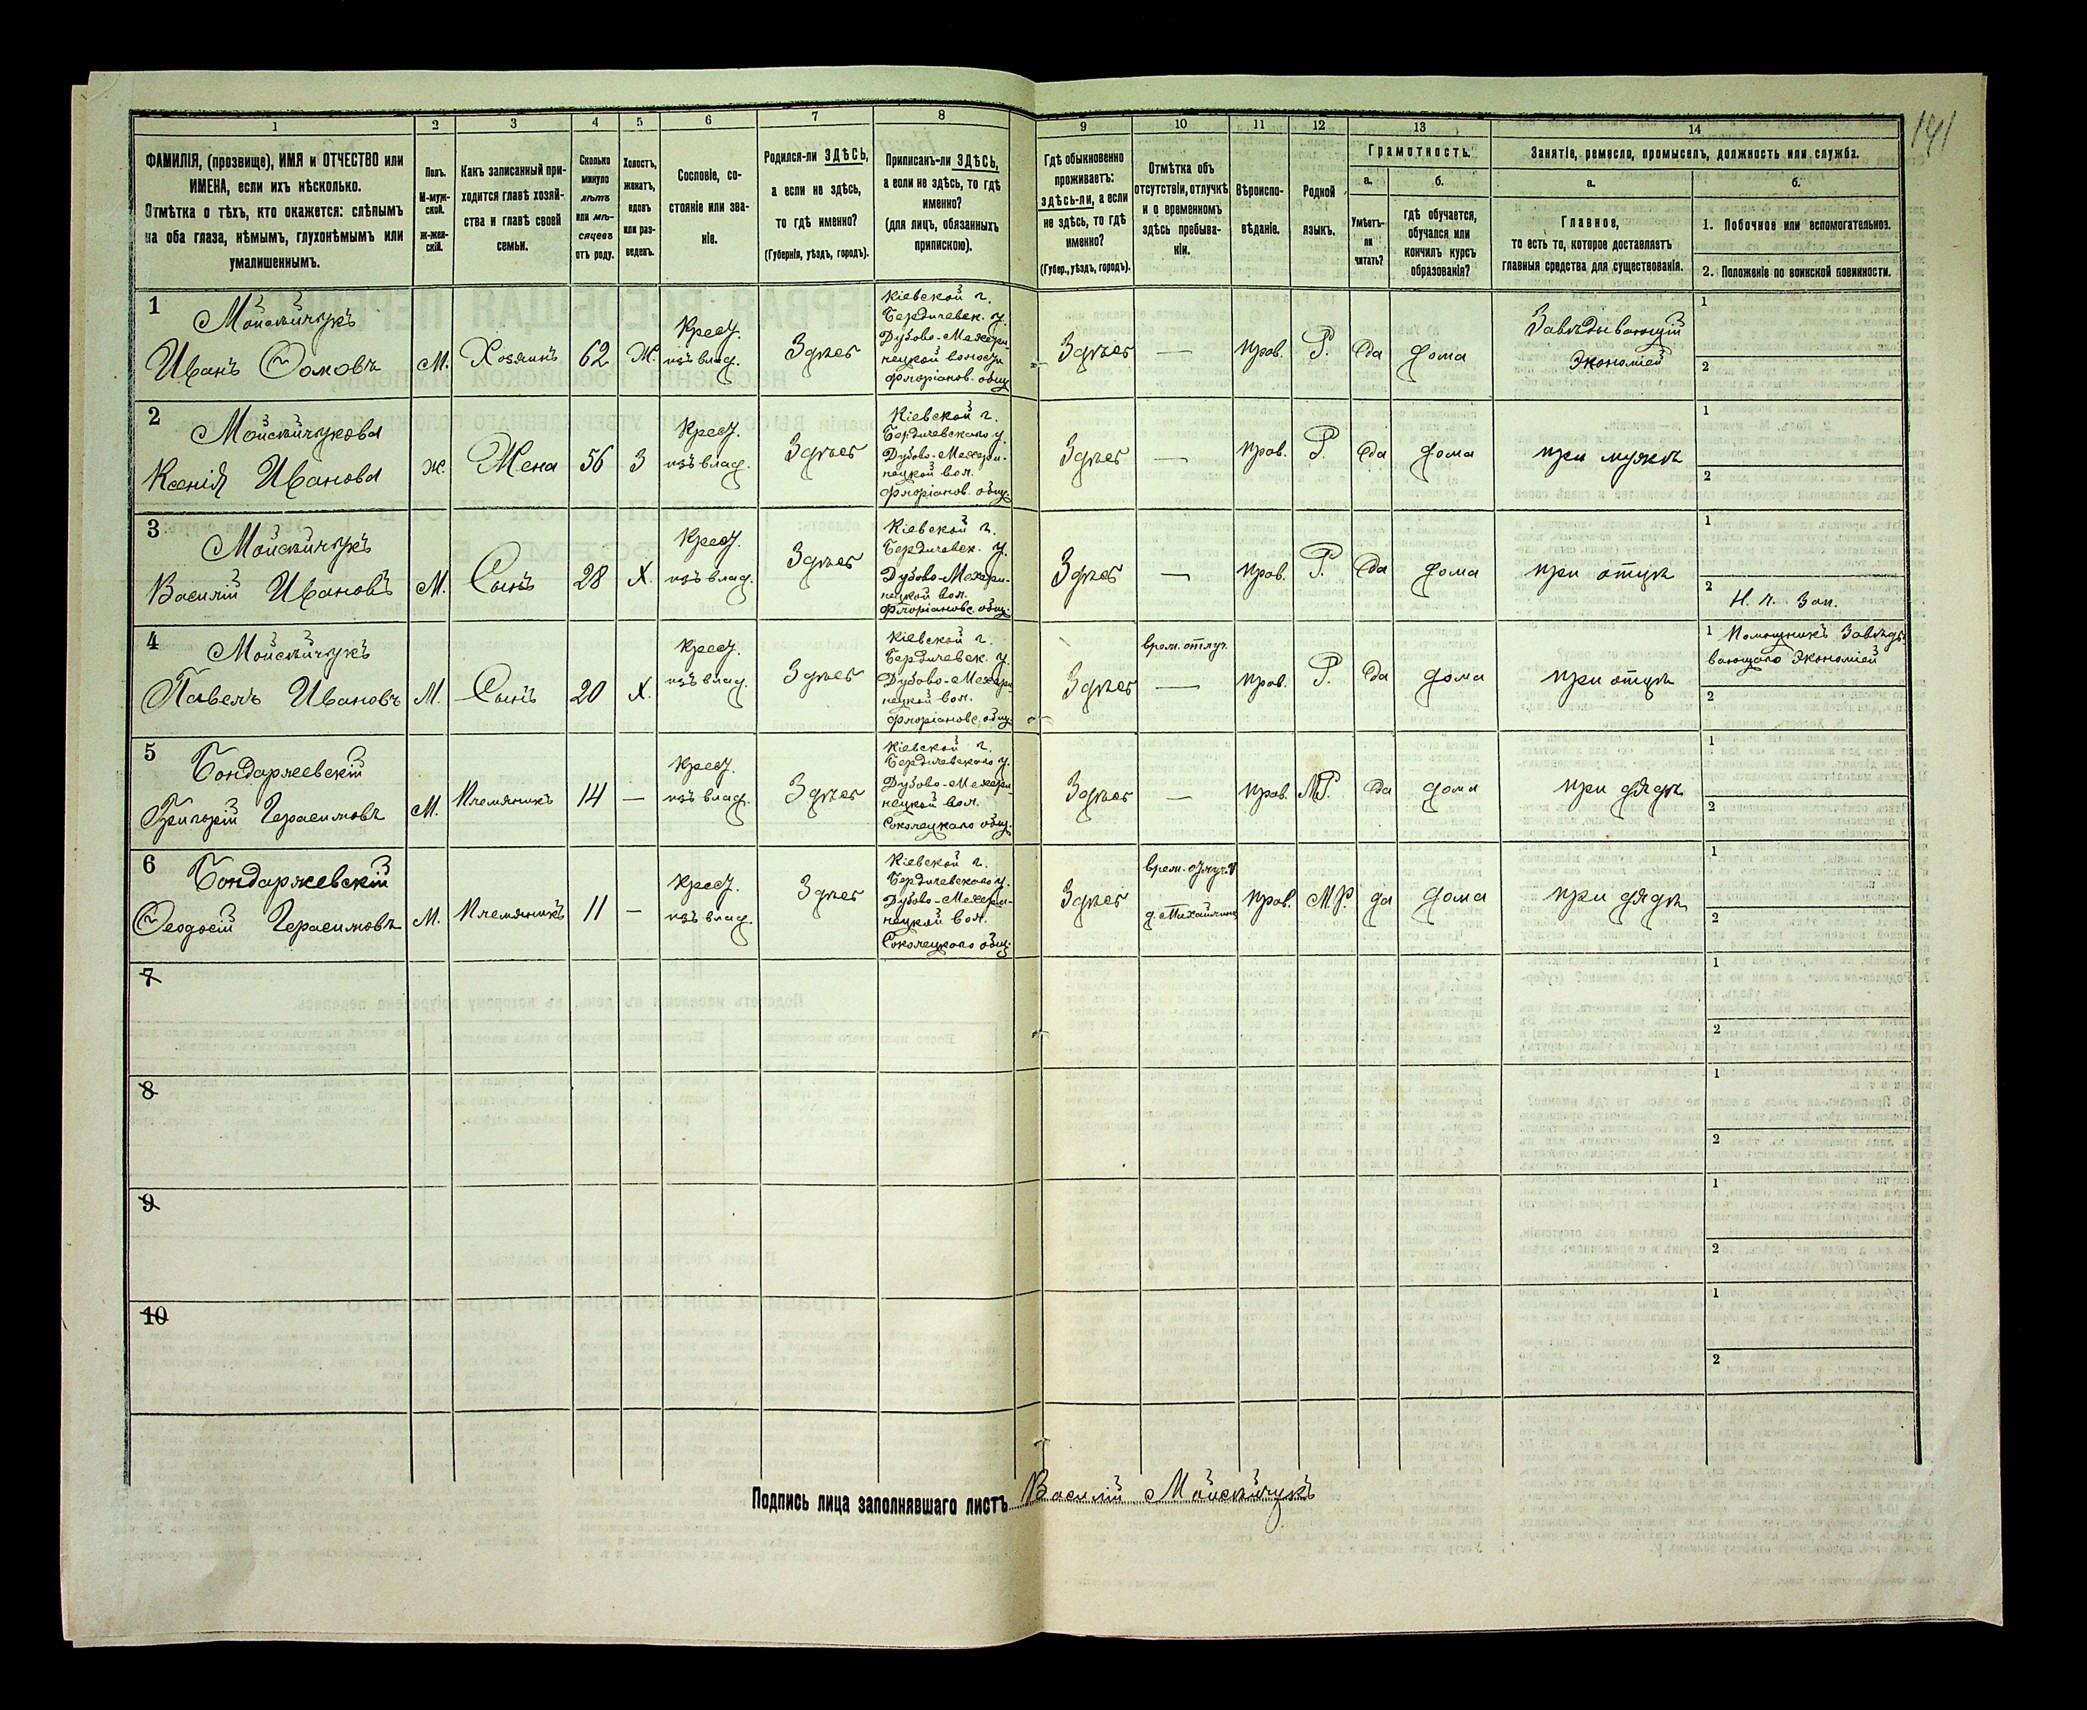 141
1
2
3
4
5
6
7
8
9
10
11
12
13
14
ФАМИЛІЯ, (прозвище), ИМЯ и ОТЧЕСТВО или
ИМЕНА, если ихъ нѣсколько.
Отмѣтка о тѣхъ, кто окажется: слѣпымъ
на оба глаза, нѣмымъ, глухонѣмымъ или
умалишеннымъ.
Полъ.
М-муж-
ской.
Ж-жен-
скій.
Какъ записанный при-
ходится главѣ хозяй-
ства и главѣ своей
семьи.
Сколько
минуло
лѣтъ
или мѣ-
сяцевъ
отъ роду.
Холостъ,
женатъ,
вдовъ
или раз-
веденъ.
Сословіе, со-
стояніе или зва-
ніе.
Родился-ли ЗДѢСЬ,
а если не здѣсь,
то гдѣ именно?
(Губернія, уѣздъ, городъ).
Приписанъ-ли ЗДѢСЬ,
а если не здѣсь, то гдѣ
именно?
(для лицъ, обязанныхъ
припискою).
Гдѣ обыкновенно
проживаетъ:
здѣсь-ли, а если
не здѣсь, то гдѣ
именно?
(Губер., уѣздъ, городъ).
Отмѣтка объ
отсутствіи, отлучкѣ
и о временномъ
здѣсь пребыва-
ніи.
Вѣроиспо-
вѣданіе.
Родной
языкъ.
Грамотность.
а.
Умѣетъ-
ли
читать?
б.
гдѣ обучается,
обучался или
кончилъ курсъ
образованія?
Занятіе, ремесло, промыселъ, должность или служба.
а.
Главное,
то есть то, которое доставляетъ
главныя средства для существованія.
б.
1. Побочное или вспомогательноз.
2. Положеніе по воинской повинности.
1
Мойсѣйчукъ
Иванъ Ѳомовъ
М.
Хозяинъ
62
Ж.
Крест.
изъ влад.
Здѣсь
Кіевской г.
Бердичевск. у.
Дубово-Махари-
нецкой волости
Флоріанов. общ.
Здѣсь
—
Прав.
Р.
Да
Дома
Завѣдывающій
Экономіей
1
2
2
Мойсѣйчукова
Ксенія Иванова
ж.
Жена
56
З
Крест.
изъ влад.
Здѣсь
Кіевской г.
Бердичевскаго у.
Дубово-Махари-
нецкой вол.
Флоріанов. общ.
Здѣсь
—
Прав.
Р.
Да
Дома
При мужѣ
1
2
3
Мойсѣйчукъ
Василій Ивановъ
М.
Сынъ
28
Х.
Крест.
изъ влад.
Здѣсь
Кіевской г.
Бердичевск. у.
Дубово-Махари-
нецкой вол.
Флоріановс. общ.
Здѣсь
—
Прав.
Р.
Да
Дома
При отцѣ
1
2
Н. г. Зап.
4
Мойсѣйчукъ
Павелъ Ивановъ
М.
Сынъ
20
Х.
Крест.
изъ влад.
Здѣсь
Кіевской г.
Бердичевск. у.
Дубово-Махари-
нецкой вол.
Флоріановс. общ.
Здѣсь
врем. отлуч.
—
Прав.
Р.
Да
Дома
При отцѣ
1 Помощникъ Завѣды-
вающаго Экономіей
2
5
Бондаржевскій
Григорій Герасимовъ
М.
Племянникъ
14
—
Крест.
изъ влад.
Здѣсь
Кіевской г.
Бердичевскаго у.
Дубово-Махари-
нецкой вол.
Соколецкаго общ.
Здѣсь
—
Прав.
М.Р.
Да
Дома
При дядѣ
1
2
6
Бондаржевскій
Ѳеодосій Герасимовъ
М.
Племянникъ
11
—
Крест.
изъ влад.
Здѣсь
Кіевской г.
Бердичевскаго у.
Дубово-Махари-
нецкой вол.
Соколецкаго общ.
Здѣсь
врем. отлуч.
Прав.
М.Р.
да
Дома
При дядѣ
1
2
7
1
2
8
1
2
9
1
2
10
1
2
Подпись лица заполнявшаго листъ Василій Мойсѣйчукъ